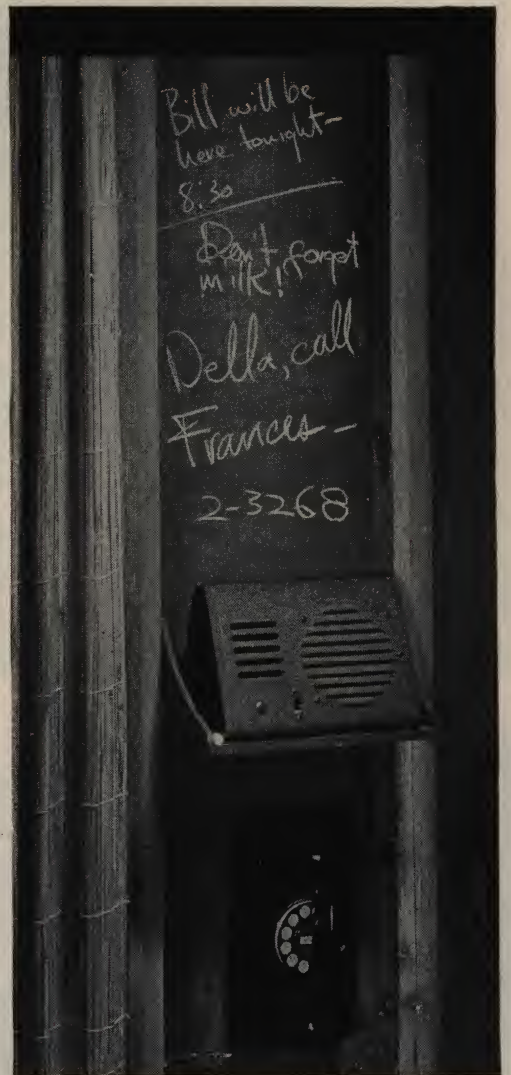 Bill will be
here tonight-
8:30
Don't forget
milk!
Della, call
Frances-
2-3268